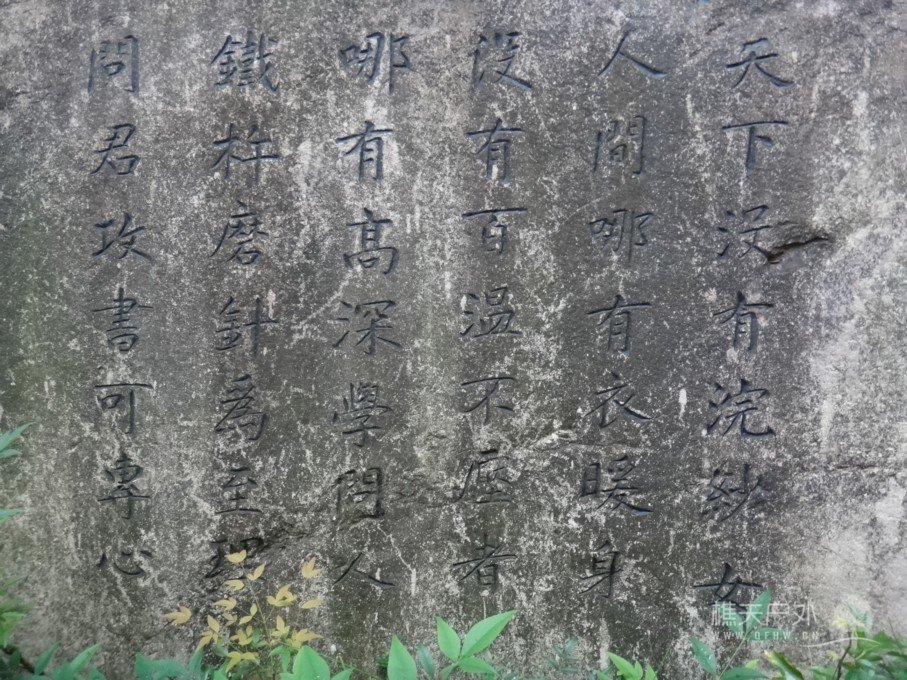 天下没有浣紗女
人間哪有衣暖身
没有百温不厔者
哪有高深學問人
鐵杵磨針為至理
問君攻書可專心
樵夫户外
WWW.QFHW.CN